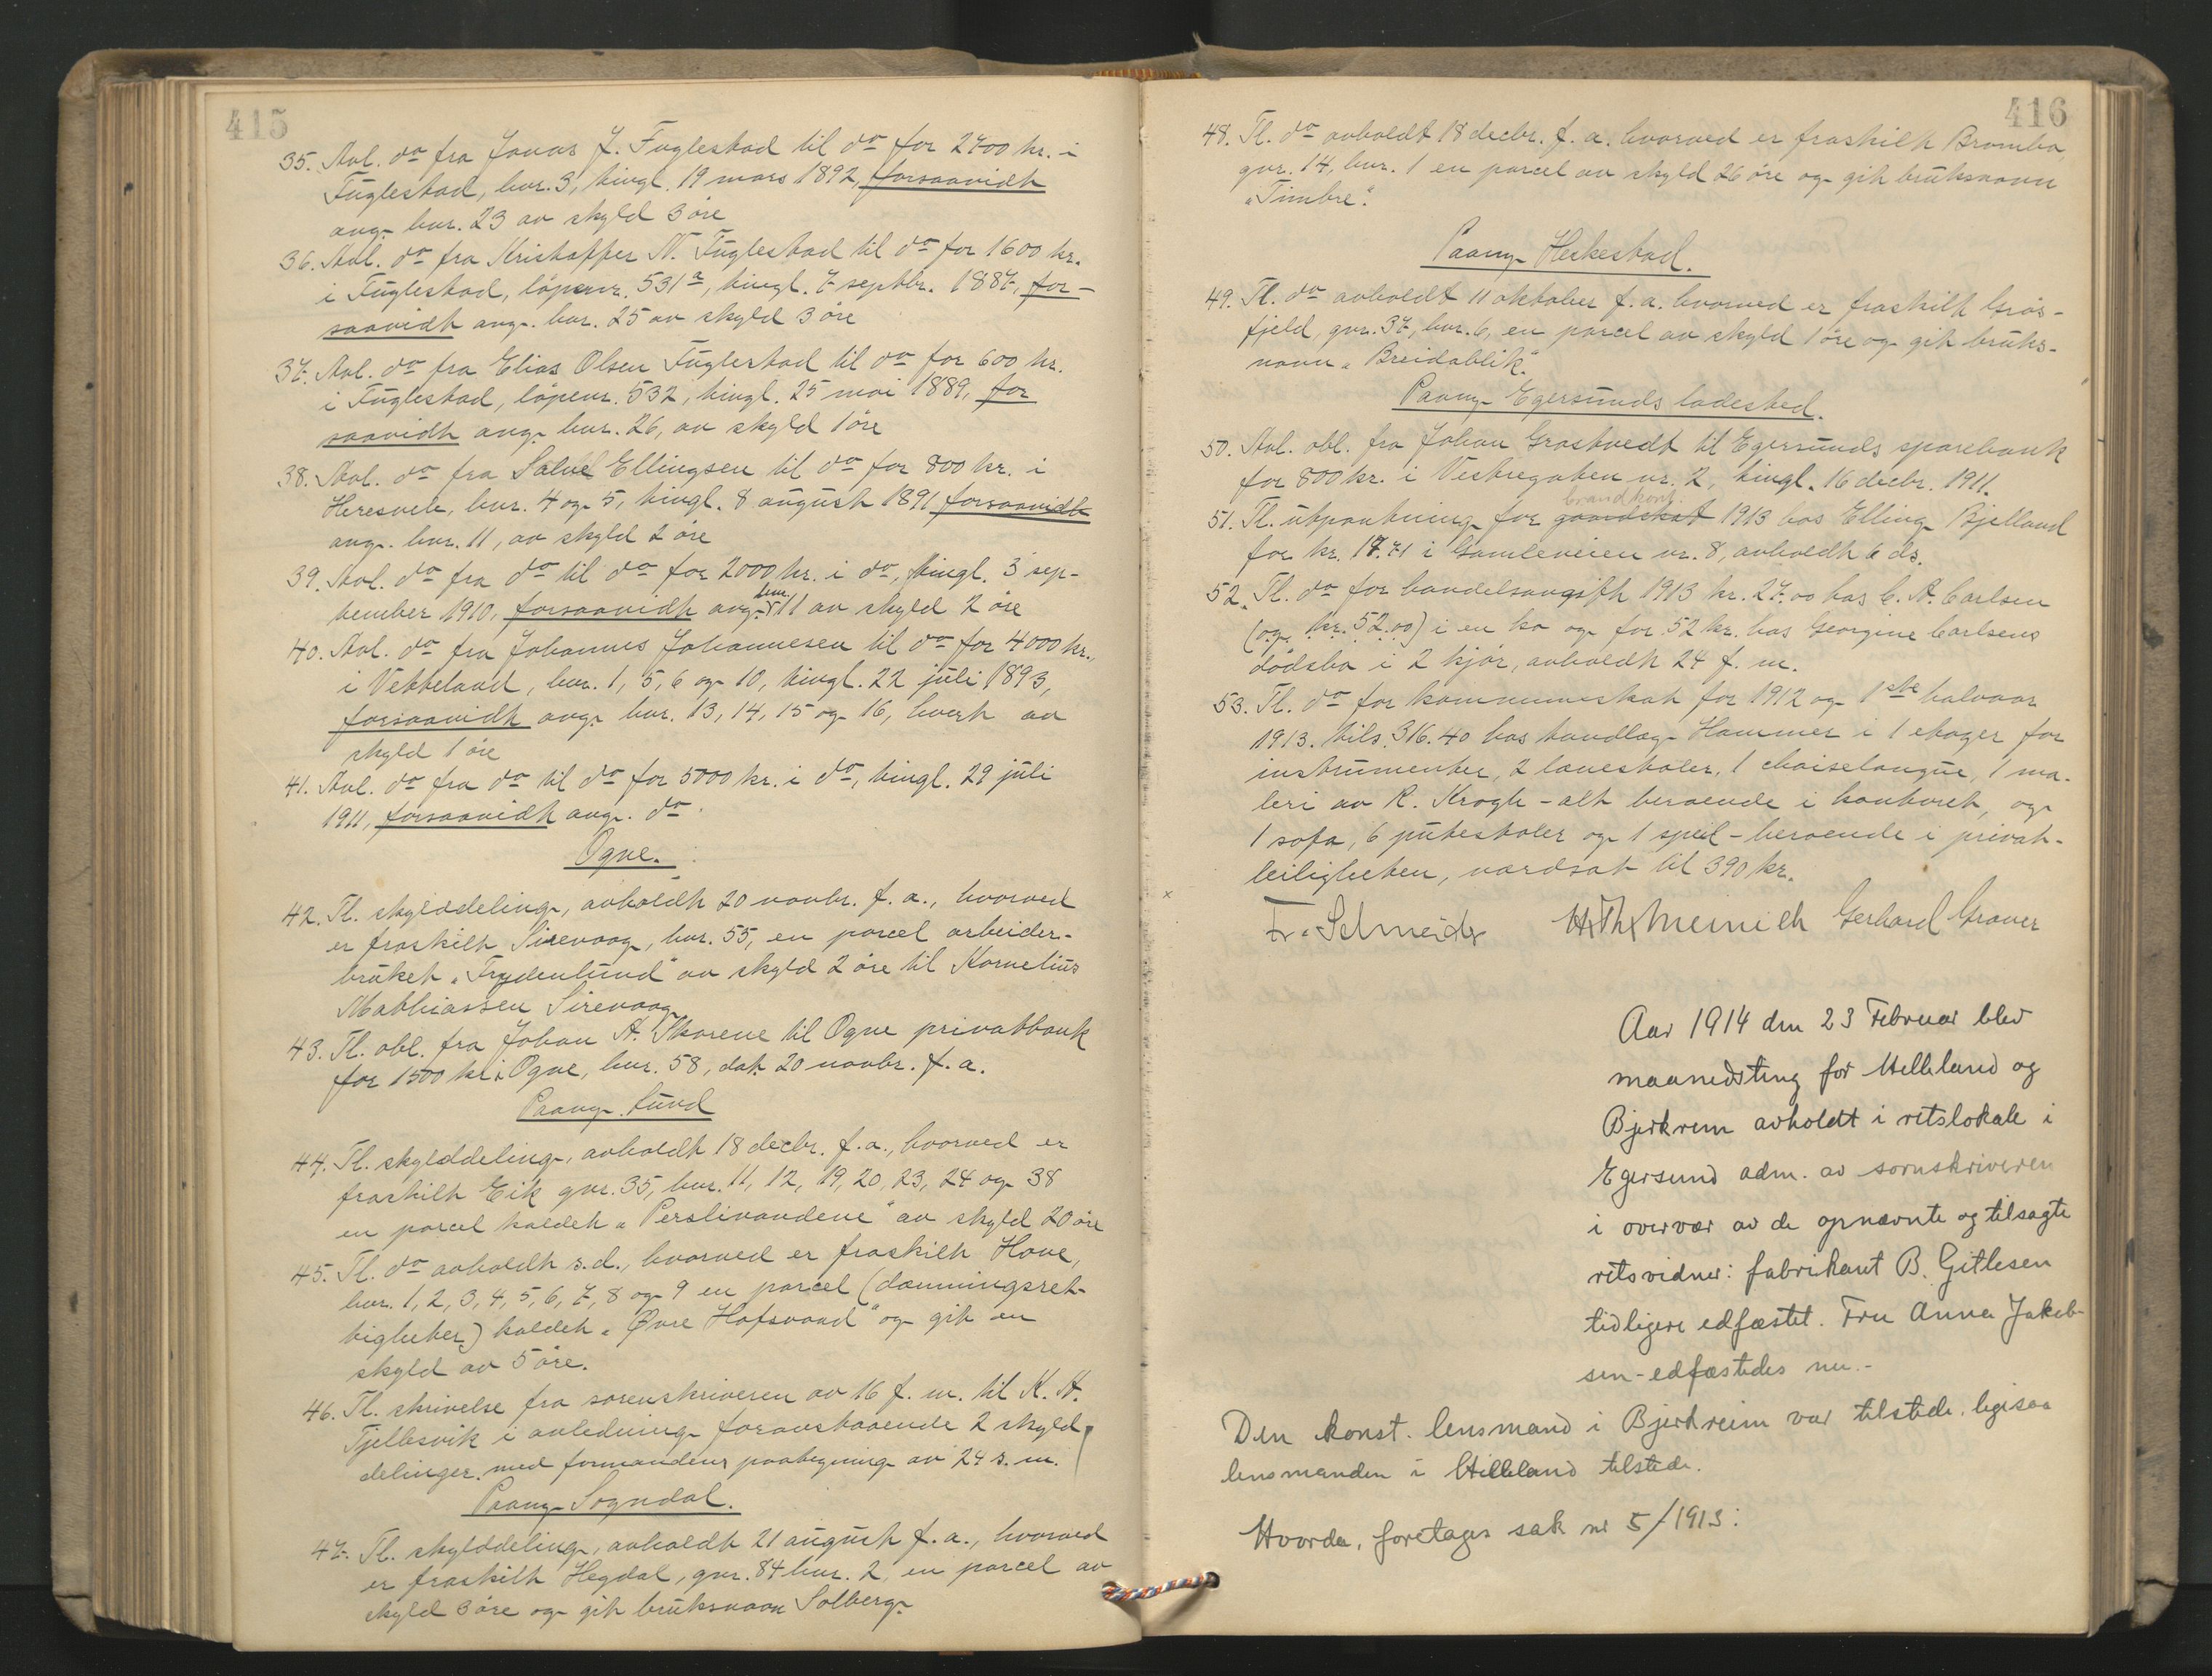 415
35. Avl. do fra Jonas J. Fuglestad til do for 2400 kr. i
Fuglestad, bnr. 3, tingl. 19 mars 1892, forsaavidt
ang. bnr. 23 av skyld 3 øre
36. Avl. do fra Kristoffer N. Fuglestad til do for 1600 kr.
i Fuglestad, løpenr. 531a, tingl. 7 septbr. 1887, for-
saavidt ang. bnr. 25 av skyld 3 øre
37. Avl. do fra Elias Olsen Fuglestad til do for 600 kr.
i Fuglestad, løpenr. 532, tingl. 25 mai 1889, for
saavidt ang. bnr. 26, av skyld 1 øre
38. Avl. do fra Salve Ellingsen til do for 800 kr. i
Heresvele, bnr. 4 og 5, tingl. 8 august 1891 forsaavidt
ang. bnr. 11, av skyld 2 øre
39. Avl. do fra do til do for 2000 kr. i do, tingl. 3 sep-
tember 1910, forsaavidt ang. bnr. 11 av skyld 2 øre
40. Avl. do fra Johannes Johannesen til do for 4000 kr.,
i Vetteland, bnr. 1, 5, 6 og 10, tingl. 22 juli 1893,
forsaavidt ang. bnr. 13, 14, 15 og 16, hvert av
skyld 1 øre
41. Avl. do fra do til do for 5000 kr. i do, tingl. 29 juli
1911, forsaavidt ang. do
Ogne.
42. Tl. skylddeling, avholdt 20 novbr. f. a., hvorved
er fraskilt Sirevaag, bnr. 55, en parcel arbeider-
bruket "Frydenlund" av skyld 2 øre til Kornelius
Mathiassen Sirevaag
43. Tl. obl. fra Johan A. Skarene til Ogne privatbank
for 1500 kr. i Ogne, bnr. 58, dat. 20 novbr. f. a.
Paang. Lund
44. Tl. skylddeling, avholdt 18 decbr. f. a., hvorved er
fraskilt Eik gnr. 35, bnr. 11, 12, 19, 20, 23, 24 og 38
en parcel kaldet "Perslivandene" av skyld 20 øre
45. Tl. do avholdt s. d., hvorved er fraskilt Hove,
bnr. 1, 2, 3, 4, 5, 6, 7, 8 og 9 en parcel (dæmningsret-
tigheter) kaldet "Øvre Hofsvand" og gik en
skyld av 5 øre.
46. Tl. skrivelse fra sorenskriveren av 16 f. m. til K. A.
Tjellesvik i anledning foranstaaende 2 skyld
delinger. med formandens paategning av 24 s. m.
Paang. Sogndal.
47. Tl. skylddeling, avholdt 21 august f. a., hvorved
er fraskilt Hegdal, gnr. 84 bnr. 2, en parcel av
skyld 3 øre og gik bruksnavn Solberg.
416
48. Tl. do avholdt 18 decbr. f. a. hvorved er fraskilt Bromba,
gnr. 14, bnr. 1 en parcel av skyld 26 øre og gik bruksnavn
"Timbre".
Paang. Heskestad.
49. Tl. do avholdt 11 oktober f. a. hvorved er fraskilt Grøs-
fjeld, gnr. 37, bnr. 6, en parcel av skyld 1 øre og gik bruks-
navn "Breidablik".
Paang. Egersunds ladested.
50. Avl. obl. fra Johan Grastvedt til Egersunds sparebank
for 800 kr. i Vestregaten nr. 2, tingl. 16 decbr. 1911.
brandkont.
51. Tl. utpantning for gaardskat 1913 hos Elling Bjelland
for kr. 17.71 i Gamleveien nr. 8, avholdt 6 ds.
52. Tl. do for handelsavgift 1913 kr. 27.00 hos C. A. Carlsen
(og kr. 52.00) i en ko og for 52 kr. hos Georgine Carlsens
dødsbo i 2 kjør, avholdt 24 f. m.
53. Tl. do for kommuneskat for 1912 og 1ste halvaar
1913. tils. 316.40 hos tandlæge Hammer i 1 etager for
instrumenter, 2 lænestoler, 1 chaiselongue, 1 ma-
leri av R. Krogh - alt beroende i kontoret, og
1 sofa, 6 pütestoler og 1 speil - beroende i privat-
leiligheten, værdsat til 390 kr.
Fr. Schneider Gerhard Graver
Aar 1914 den 23 Februar blev
maanedsting for Helleland og
Bjerkrem avholdt i retslokale i
Egersund adm. av sornskriveren
i overvær av de opnævnte og tilsagte
retsvidner: fabrikant B. Gitlesen
tidligere edfæstet. Fru Anna Jakob-
sen - edfæstedes nu. -
Den konst. lensmand i Bjerkreim var tilstede. ligesaa
lensmanden i Helleland tilstede.
Hvorda, foretages sak nr 5/1913: